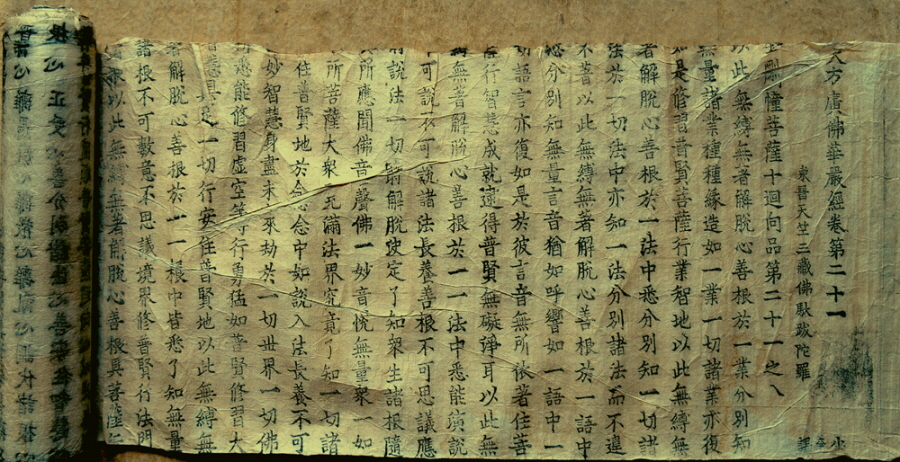 大方廣佛華嚴經卷第二十一
東晉天竺三藏佛馱跋陀羅
譯
金剛幢菩薩十迴向品第二十一之八
以此無縛無著解脫心善根於一業分別知
無量諸業種種緣造如一業一切諸業亦復
如是修習普賢菩薩行業智地以此無縛無
著解脫心善根於一法中悉分別知一切諸
法於一切法中亦知一法分別諸法而不違
不著以此無縛無著解脫心善根於一語中
悉分別知無量言音猶如呼響如一語中一
切語言亦復如是於彼言音無所依著住菩
薩行智慧成就逮得普賢無礙淨耳以此無
縛無著解脫心善根於一一法中悉能演說
可說不可說諸法長養善根不可思議應
時說法一切時解脫決定了知眾生諸根隨
所應聞佛音聲佛一妙音悅無量眾一如
所菩薩大眾充滿法界究竟了知一切諸
住普賢地於念念中如說入法長養不可
妙智慧身盡未來劫於一切世界一切佛
悉能修習虛空等行勇猛如普賢修習大
悉具足一切行安住普賢地以此無縛無
著解脫心善根於一一根中皆悉了知無量
諸根不可數意不思議境界修普賢行法門
以此無縛無著解脫心善根具菩薩